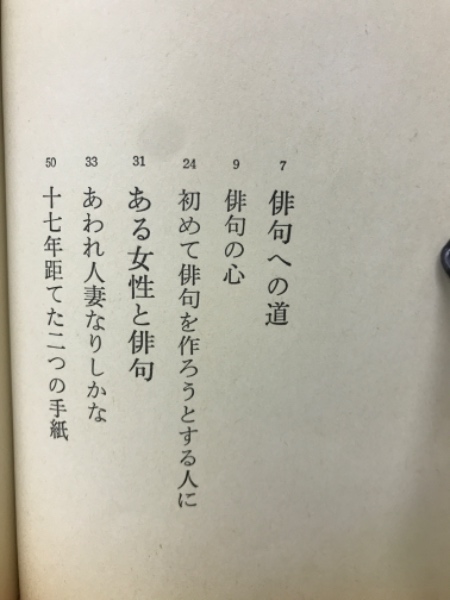 7 俳句への道
9 俳句の心
24 初めて俳句を作ろうとする人に
31 ある女性と俳句
33 あわれ人妻なりしかな
50 十七年距てた二つの手紙